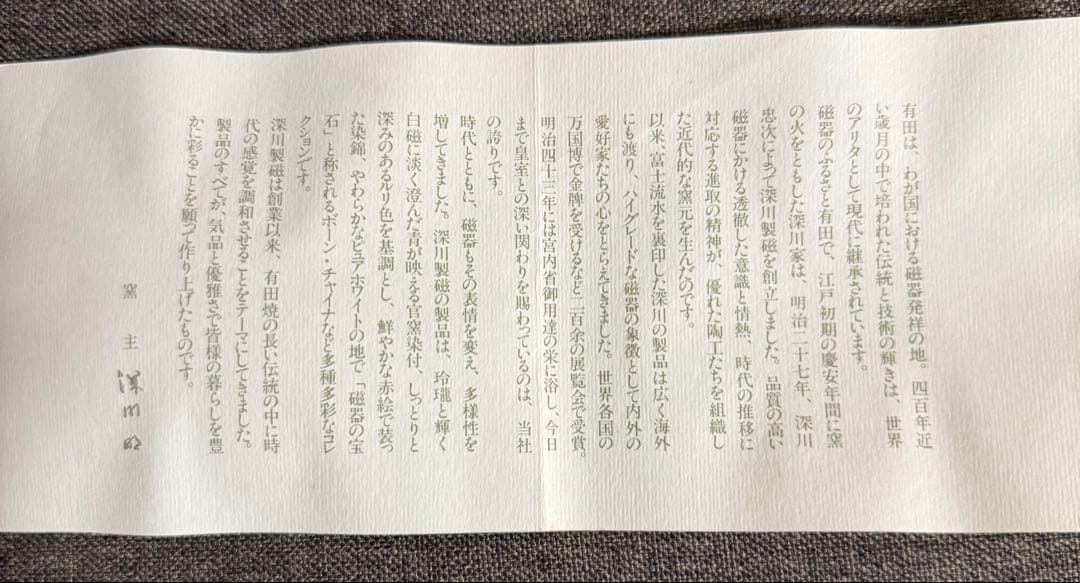 有田は、わが国における磁器発祥の地。四百年近
い歳月の中で培われた伝統と技術の輝きは、世界
のアリタとして現代に継承されています。
磁器のふるさと有田で、江戸初期の慶安年間に窯
の火をともした深川家は、明治二十七年、深川
忠次によって深川製磁を創立しました。品質の高い
磁器にかける透徹した意識と情熱、時代の推移に
対応する進取の精神が、優れた陶工たちを組織し
た近代的な窯元を生んだのです。
以来、富士流水を裏印した深川の製品は広く海外
にも渡り、ハイグレードな磁器の象徴として内外の
愛好家たちの心をとらえてきました。世界各国の
万国博で金牌を受けるなど二百余の展覧会で受賞。
明治四十三年には宮内省御用達の栄に浴し、今日
まで皇室との深い関わりを賜わっているのは、当社
の誇りです。
時代とともに、磁器もその表情を変え、多様性を
増してきました。深川製磁の製品は、玲瓏と輝く
白磁に淡く澄んだ青が映える官窯染付、しっとりと
深みのあるルリ色を基調とし、鮮やかな赤絵で装っ
た染錦、やわらかなピュアホワイトの地で「磁器の宝
石」と称されるボーン・チャイナなど多種多彩なコレ
クションです。
深川製磁は創業以来、有田焼の長い伝統の中に時
代の感覚を調和させることをテーマにしてきました。
製品のすべてが、気品と優雅さで皆様の暮らしを豊
かに彩ることを願って作り上げたものです。
窯主 深川